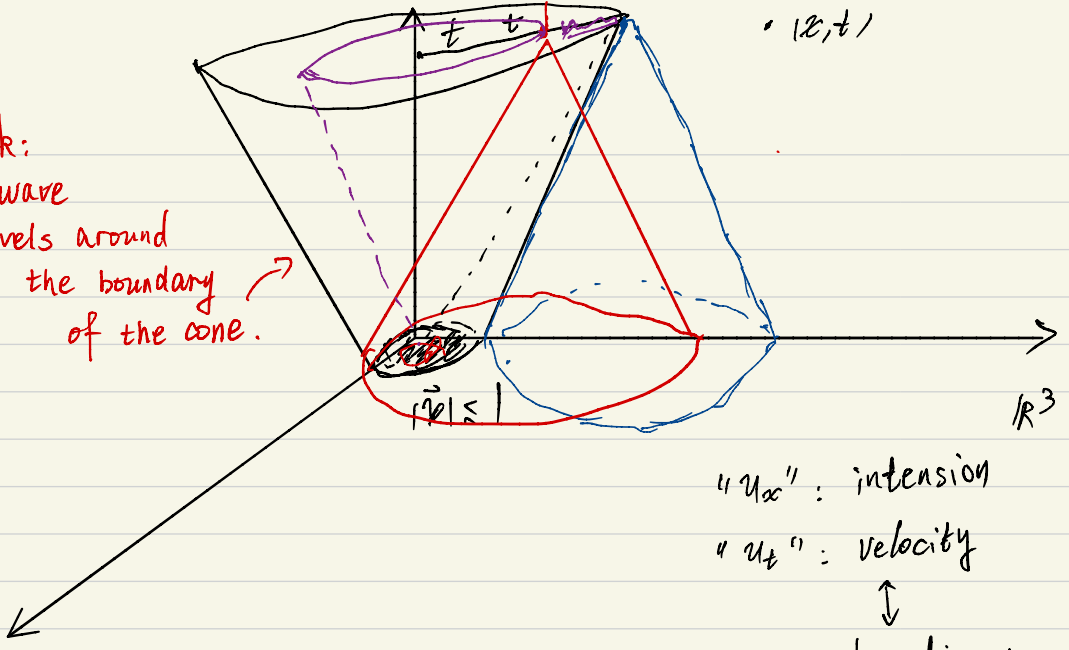 t t
• (x, t)
k:
wave
vels around
the boundary
of the cone.
|x⃗| ≤ 1
ℝ³
"u_x" : intension
"u_t" : velocity
↕